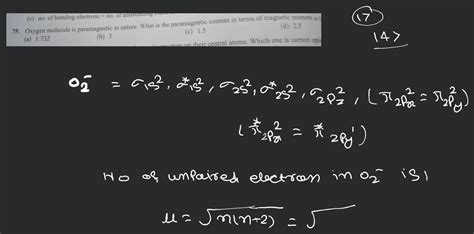 (c) no. of bonding electron = no. of
78. Oxygen molecule is paramagnetic in nature. What is the paramagnetic content in terms of magnetic moment
(a) 1.732 (b) 3 (c) 1.5 (d) 2.5
on their central atoms. Which one is correct
17
14>
O₂⁻ = σ1s², σ*1s², σ2s², σ*2s², σ2pz², (π2px² = π2py²)
(π*2px² = π*2py¹)
No of unpaired electron in O₂⁻ is 1
μ = √n(n+2) = √